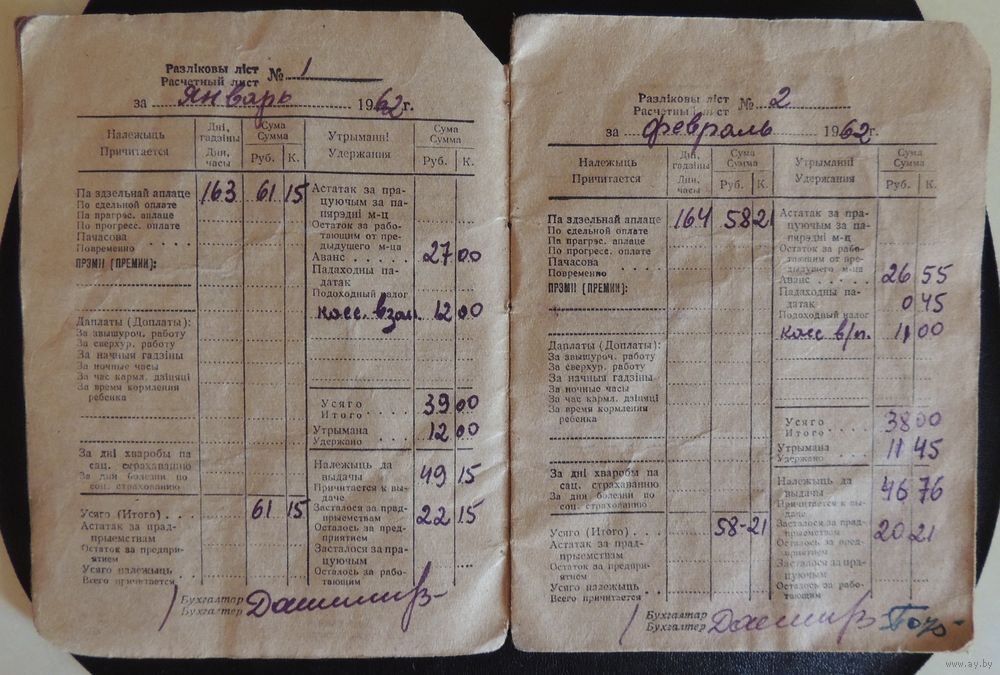 Разліковы ліст
Расчетный лист № 1
за Январь 1962 г.
Належыць
Причитается
Дні, гадзіны
Дни, часы
Сума
Сумма
Руб. К.
Утрыманні
Удержания
Сума
Сумма
Руб. К.
Па здзельнай аплаце 163 61 15
По сдельной оплате
Па прагрэс. аплаце
По прогресс. оплате
Пачасова
Повременно
ПРЭМІІ (ПРЕМИИ):
Даплаты (Доплаты):
За звышуроч. работу
За сверхур. работу
За начныя гадзіны
За ночные часы
За час кармл. дзіцяці
За время кормления
ребенка
За дні хваробы па
сац. страхаванню
За дни болезни по
соц. страхованию
Усяго (Итого) 61 15
Астатак за прад-
прыемствам
Остаток за предпри-
ятием
Усяго належыць
Всего причитается
Астатак за пра-
цуючым за па-
пярэдні м-ц
Остаток за рабо-
тающим от пре-
дыдущего м-ца
Аванс 27 00
Падаходны па-
датак
Подоходный налог
касс. взаи. 12 00
Усяго
Итого 39 00
Утрымана
Удержано 12 00
Належыць да
выдачы 49 15
Причитается к вы-
даче
Засталося за прад-
прыемствам 22 15
Осталось за пред-
приятием
Засталося за пра-
цуючым
Осталось за рабо-
тающим
Бухгалтар
Бухгалтер
Разліковы ліст
Расчетный лист № 2
за февраль 1962 г.
Належыць
Причитается
Дні, гадзіны
Дни, часы
Сума
Сумма
Руб. К.
Утрыманні
Удержания
Сума
Сумма
Руб. К.
Па здзельнай аплаце 164 58 21
По сдельной оплате
Па прагрэс. аплаце
По прогресс. оплате
Пачасова
Повременно
ПРЭМІІ (ПРЕМИИ):
Даплаты (Доплаты):
За звышуроч. работу
За сверхур. работу
За начныя гадзіны
За ночные часы
За час кармл. дзіцяці
За время кормления
ребенка
За дні хваробы па
сац. страхаванню
За дни болезни по
соц. страхованию
Усяго (Итого) 58-21
Астатак за прад-
прыемствам
Остаток за предпри-
ятием
Усяго належыць
Всего причитается
Астатак за пра-
цуючым за па-
пярэдні м-ц
Остаток за рабо-
тающим от пре-
дыдущего м-ца
Аванс 26 55
Падаходны па-
датак 0 45
Подоходный налог
касс в/п. 11 00
Усяго
Итого 38 00
Утрымана
Удержано 11 45
Належыць да
выдачы 46 76
Причитается к вы-
даче
Засталося за прад-
прыемствам 20 21
Осталось за пред-
приятием
Засталося за пра-
цуючым
Осталось за рабо-
тающим
Бухгалтар
Бухгалтер
www.ay.by